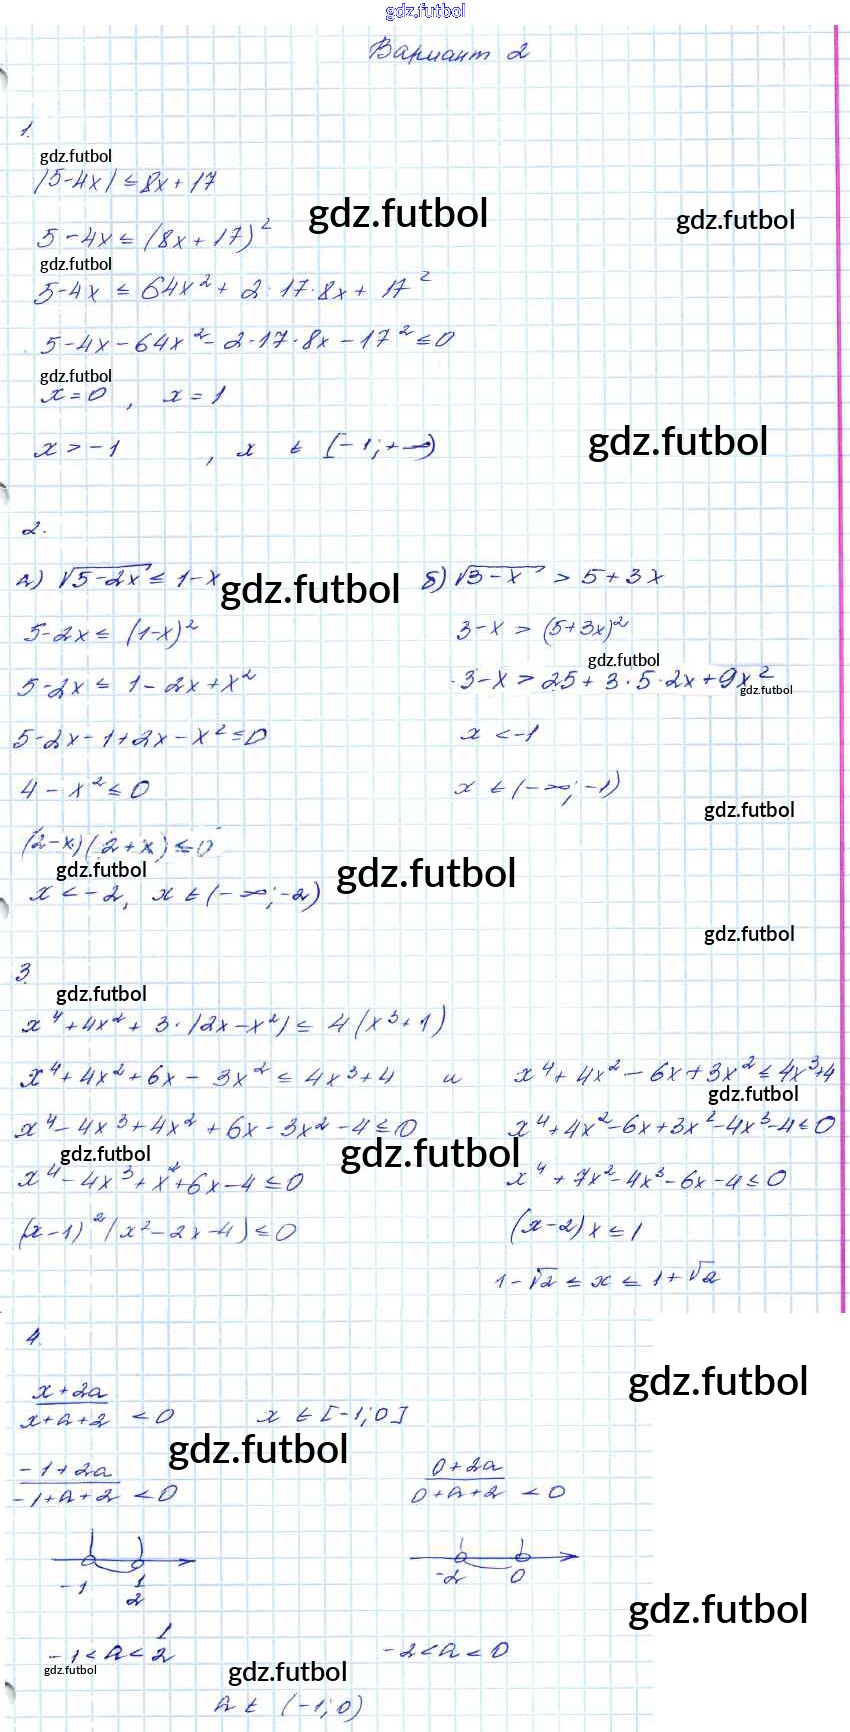 gdz.futbol
Вариант 2
1.
gdz.futbol
|5-4x| ≤ 8x+17
gdz.futbol
gdz.futbol
5-4x ≤ (8x+17)²
gdz.futbol
5-4x ≤ 64x²+2·17·8x+17²
5-4x-64x²-2·17·8x-17² ≤ 0
gdz.futbol
x=0, x=1
x>-1, x ∈ [-1;+∞)
gdz.futbol
2.
а) √5-2x ≤ 1-x
gdz.futbol
б) √3-x > 5+3x
5-2x ≤ (1-x)²
3-x > (5+3x)²
gdz.futbol
5-2x ≤ 1-2x+x²
3-x > 25+3·5·2x+9x²
gdz.futbol
5-2x-1+2x-x² ≤ 0
x < -1
4-x² ≤ 0
x ∈ (-∞;-1)
gdz.futbol
(2-x)(2+x) ≤ 0
gdz.futbol
gdz.futbol
x < -2, x ∈ (-∞;-2)
gdz.futbol
3
gdz.futbol
x⁴+4x²+3·|2x-x²| ≤ 4(x³+1)
x⁴+4x²+6x-3x² ≤ 4x³+4 и x⁴+4x²-6x+3x² ≤ 4x³+4
gdz.futbol
x⁴-4x³+4x²+6x-3x²-4 ≤ 0
x⁴+4x²-6x+3x²-4x³-4 ≤ 0
gdz.futbol
gdz.futbol
x⁴-4x³+x²+6x-4 ≤ 0
x⁴+7x²-4x³-6x-4 ≤ 0
(x-1)²(x²-2x-4) ≤ 0
(x-2)x ≤ 1
1-√2 ≤ x ≤ 1+√2
4.
gdz.futbol
x+2a
x+a+2 < 0 x ∈ [-1;0]
gdz.futbol
-1+2a
-1+a+2 < 0
0+2a
0+a+2 < 0
-1 1
2
-2 0
gdz.futbol
-1 < a < 1
2
-2 < a < 0
gdz.futbol
gdz.futbol
a ∈ (-1;0)